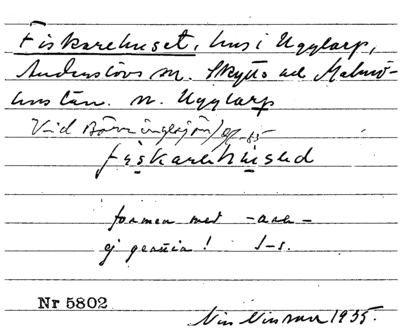 Fiskarehuset, hus i Ugglarp,
Anderslövs sn. Skytts hd Malmö-
hus län. n. Ugglarp
Vid Börringesjön
fiskarehused
formen med -are-
ej genuin! I-s.
Nr 5802 1935.